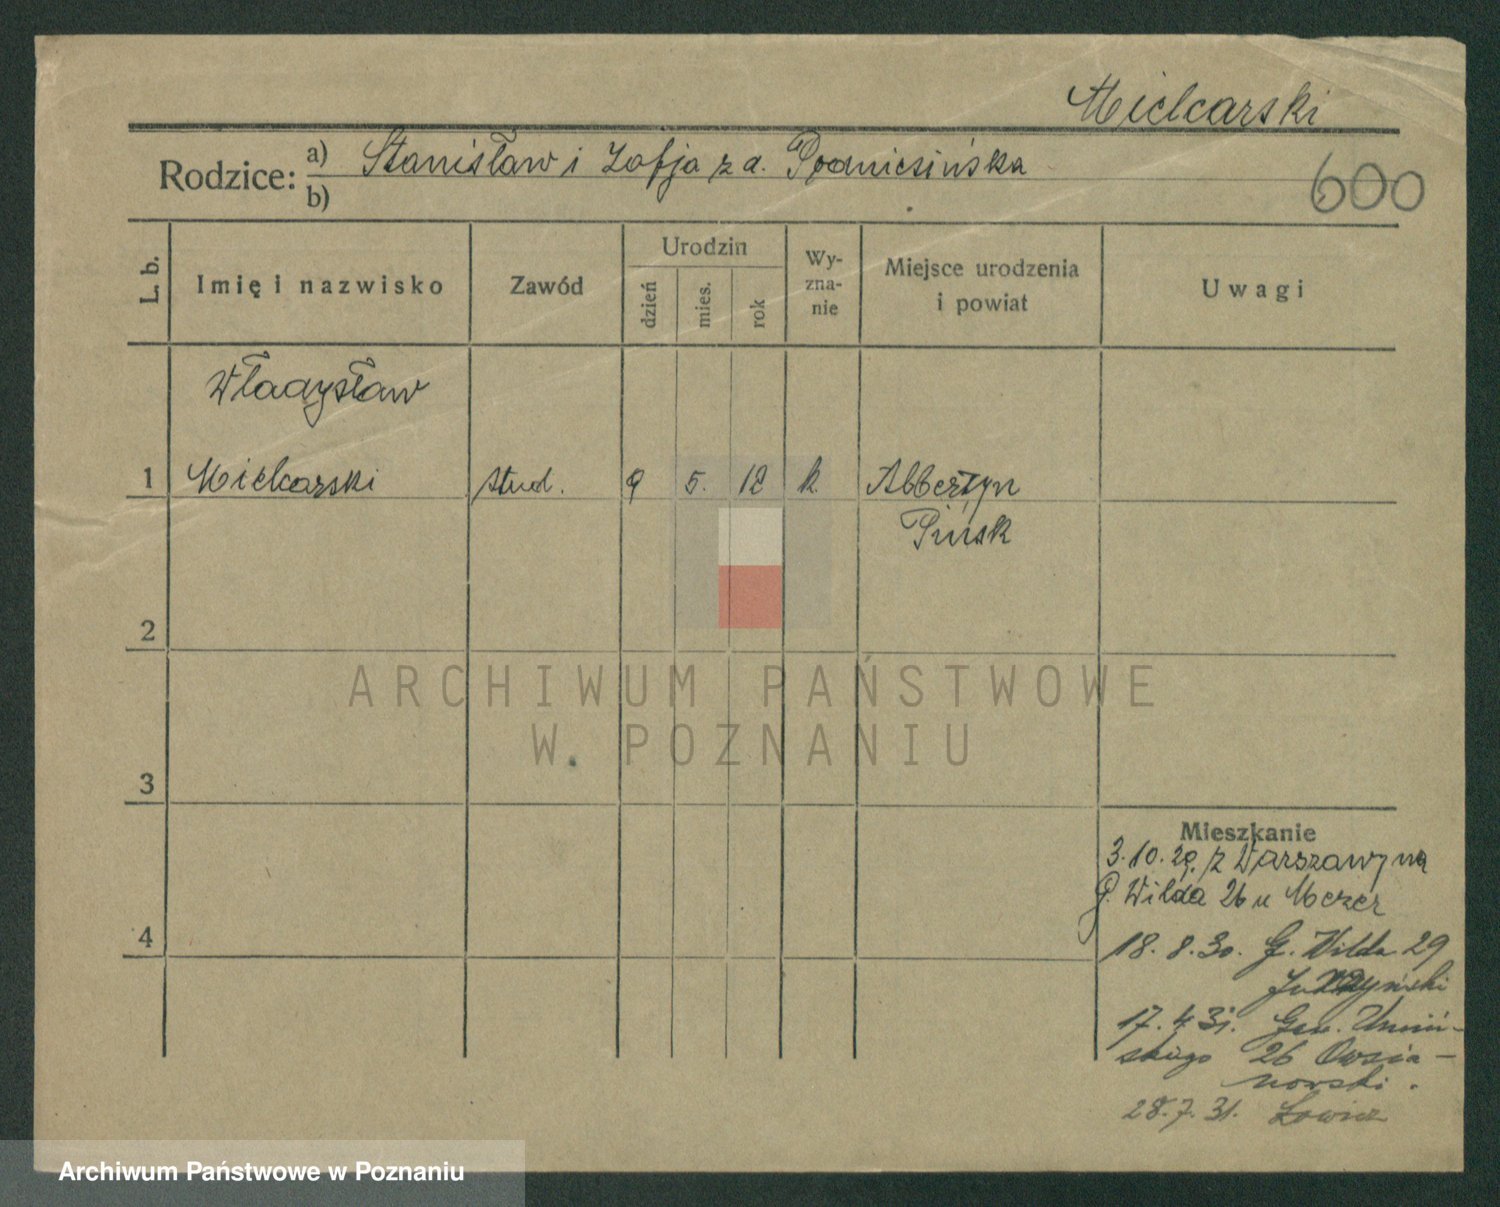 Mielcarski
Rodzice: a) Stanisław i Zofja z d. Podniesińska
b)
600
L. b.
Imię i nazwisko
Zawód
Urodzin
dzień
mies.
rok
Wy-
zna-
nie
Miejsce urodzenia
i powiat
Uwagi
Władysław
1 Mielcarski stud. 9 5. 12 k. Albertyn
Pińsk
2
3
4
Mieszkanie
3.10.29. z Warszawy na
G. Wilda 26 u Mezer
18.8.30. G. Wilda 29
17.4.31. Gen. Umiń-
skiego 26 Owsia-
nowski.
28.7.31. Łowicz
ARCHIWUM PAŃSTWOWE
W POZNANIU
Archiwum Państwowe w Poznaniu